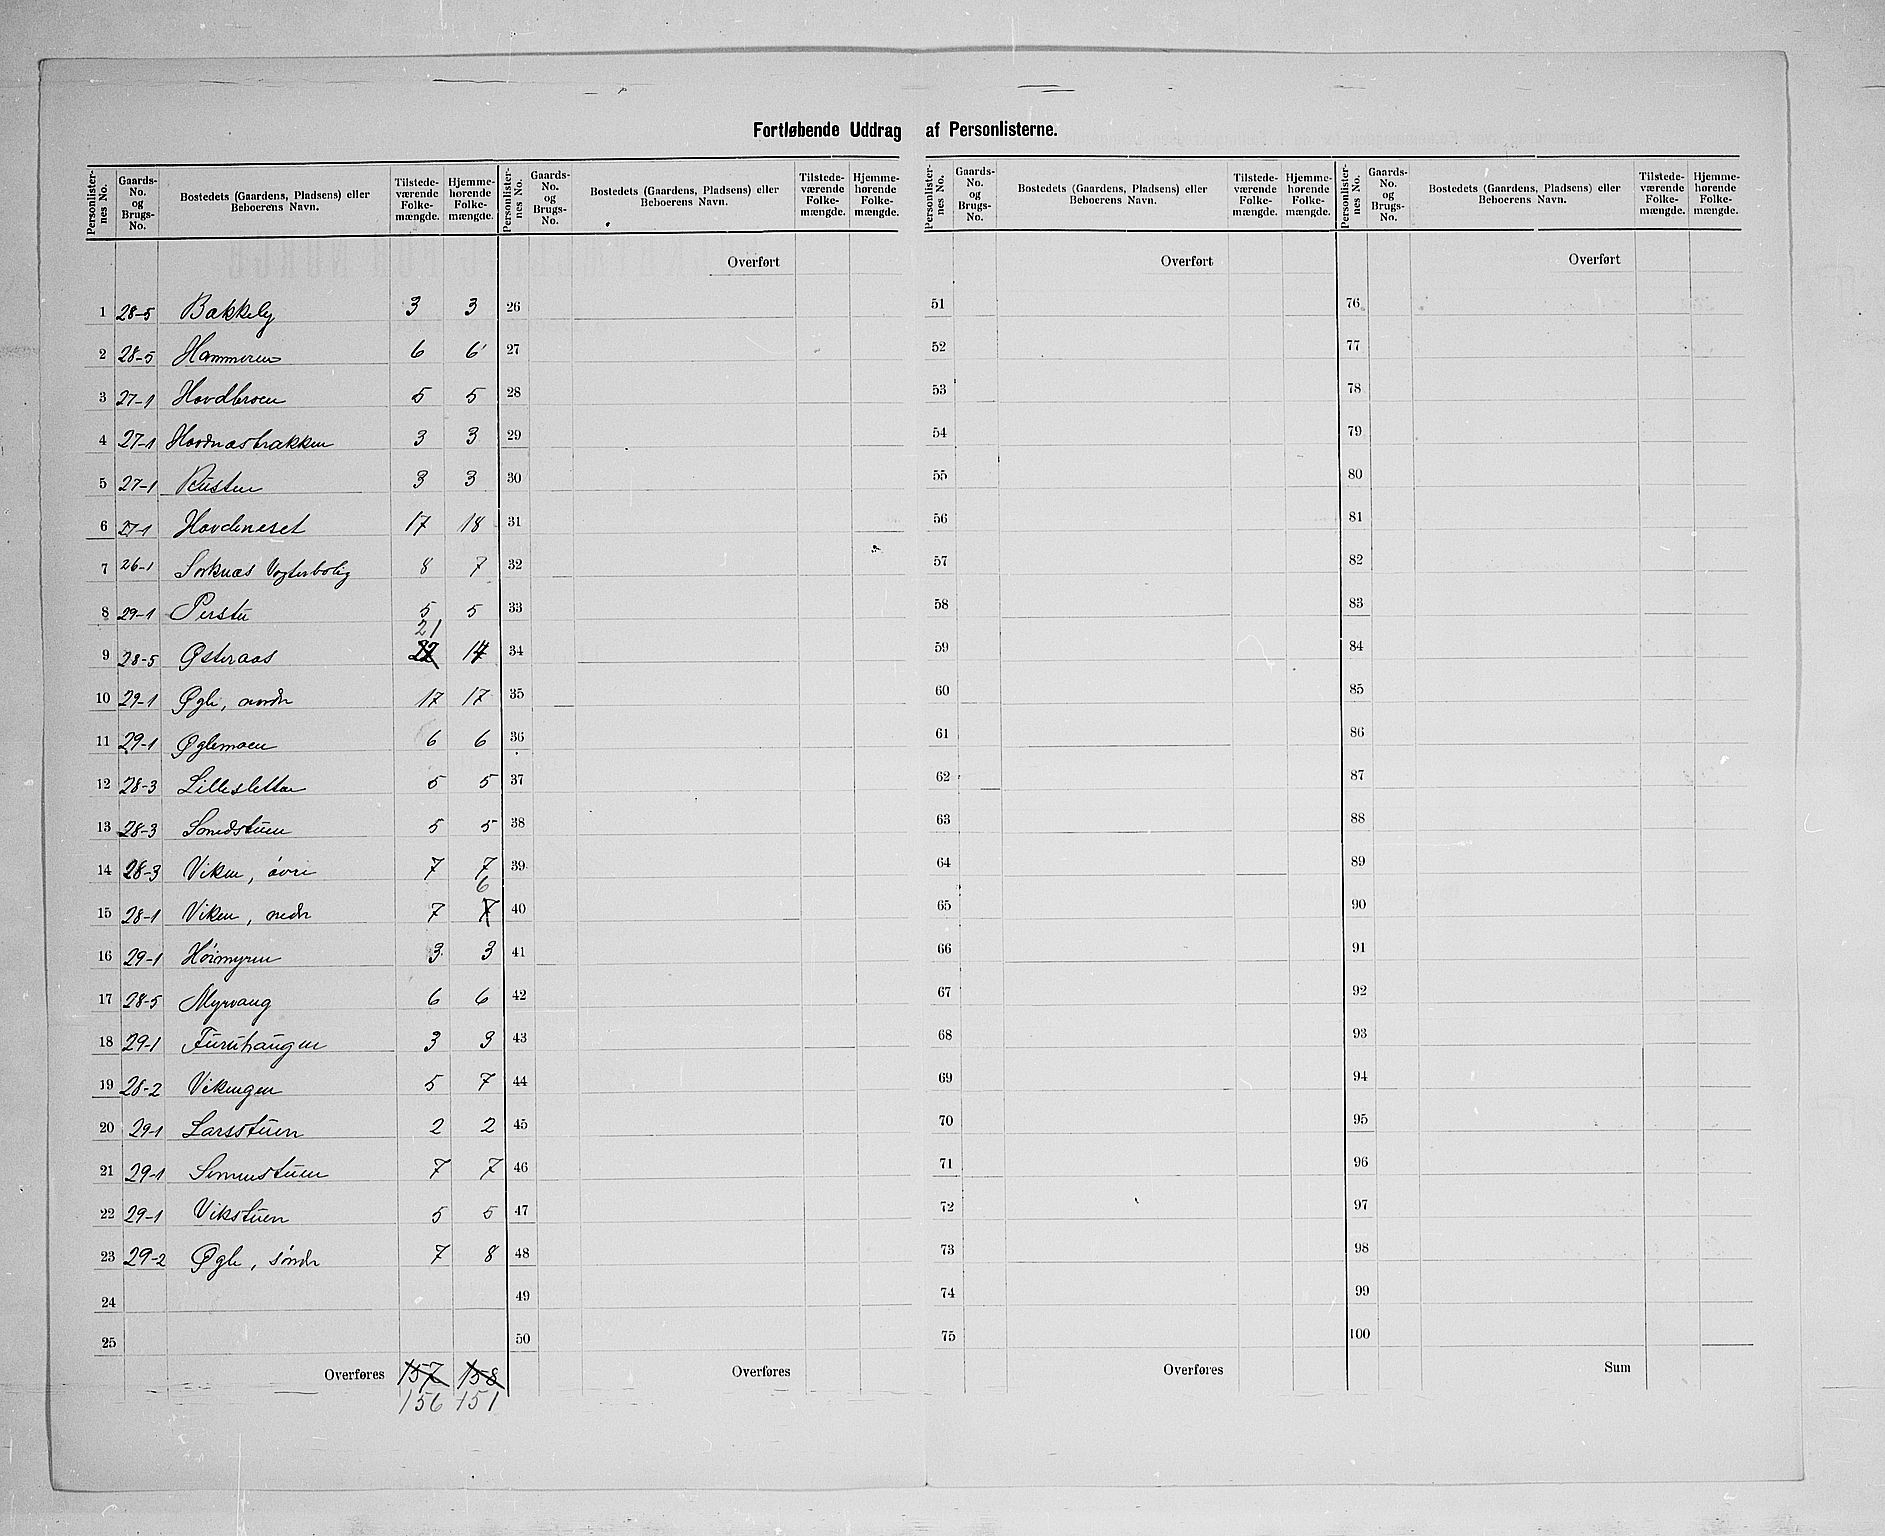 Fortløbende Uddrag af Personlisterne.
Personlister-nes No. | Gaards-No. og Brugs-No. | Bostedets (Gaardens, Pladsens) eller Beboerens Navn. | Tilstede-værende Folke-mængde. | Hjemme-hørende Folke-mængde.
1 28-5 Bakkely 3 3
2 28-5 Hammeren 6 6
3 27-1 Hovdbroen 5 5
4 27-1 Hovdnæsbrakken 3 3
5 27-1 Rusten 3 3
6 27-1 Hovdeneset 17 18
7 26-1 Sorknæs Vogterbolig 8 7
8 29-1 Perstu 5 5
21
9 28-5 Østeraas 22 14
10 29-1 Øgle, nordr 17 17
11 29-1 Øglemoen 6 6
12 28-3 Lillesletten 5 5
13 28-3 Smedstuen 5 5
14 28-3 Viken, øvre 7 7
6
15 28-1 Viken, nedr 7 7
16 29-1 Hørmyren 3 3
17 28-5 Myrvang 6 6
18 29-1 Furuhaugen 3 3
19 28-2 Vikengen 5 7
20 29-1 Larsstuen 2 2
21 29-1 Simenstuen 7 7
22 29-1 Vikstuen 5 5
23 29-2 Øgle, søndr 7 8
24
25
Overføres 157 158
156 151
Personlister-nes No. | Gaards-No. og Brugs-No. | Bostedets (Gaardens, Pladsens) eller Beboerens Navn. | Tilstede-værende Folke-mængde. | Hjemme-hørende Folke-mængde.
Overført
26
27
28
29
30
31
32
33
34
35
36
37
38
39
40
41
42
43
44
45
46
47
48
49
50
Overføres
Personlister-nes No. | Gaards-No. og Brugs-No. | Bostedets (Gaardens, Pladsens) eller Beboerens Navn. | Tilstede-værende Folke-mængde. | Hjemme-hørende Folke-mængde.
Overført
51
52
53
54
55
56
57
58
59
60
61
62
63
64
65
66
67
68
69
70
71
72
73
74
75
Overføres
Personlister-nes No. | Gaards-No. og Brugs-No. | Bostedets (Gaardens, Pladsens) eller Beboerens Navn. | Tilstede-værende Folke-mængde. | Hjemme-hørende Folke-mængde.
Overført
76
77
78
79
80
81
82
83
84
85
86
87
88
89
90
91
92
93
94
95
96
97
98
99
100
Sum